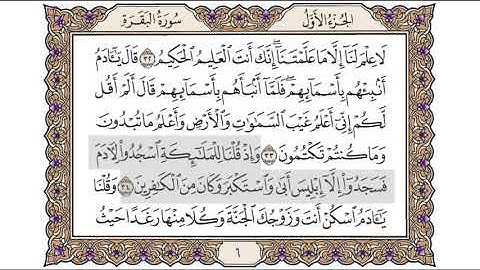 الجُزْءُ الأَوَّلُ
سُورَةُ البَقَرَةِ
لَا عِلْمَ لَنَآ إِلَّا مَا عَلَّمْتَنَآ ۖ إِنَّكَ أَنتَ ٱلْعَلِيمُ ٱلْحَكِيمُ ٣٢ قَالَ يَـٰٓـَٔادَمُ
أَنۢبِئْهُم بِأَسْمَآئِهِمْ ۖ فَلَمَّآ أَنۢبَأَهُم بِأَسْمَآئِهِمْ قَالَ أَلَمْ أَقُل
لَّكُمْ إِنِّىٓ أَعْلَمُ غَيْبَ ٱلسَّمَـٰوَٰتِ وَٱلْأَرْضِ وَأَعْلَمُ مَا تُبْدُونَ
وَمَا كُنتُمْ تَكْتُمُونَ ٣٣ وَإِذْ قُلْنَا لِلْمَلَـٰٓئِكَةِ ٱسْجُدُوا۟ لِـَٔادَمَ
فَسَجَدُوٓا۟ إِلَّآ إِبْلِيسَ أَبَىٰ وَٱسْتَكْبَرَ وَكَانَ مِنَ ٱلْكَـٰفِرِينَ ٣٤ وَقُلْنَا
يَـٰٓـَٔادَمُ ٱسْكُنْ أَنتَ وَزَوْجُكَ ٱلْجَنَّةَ وَكُلَا مِنْهَا رَغَدًا حَيْثُ
٦